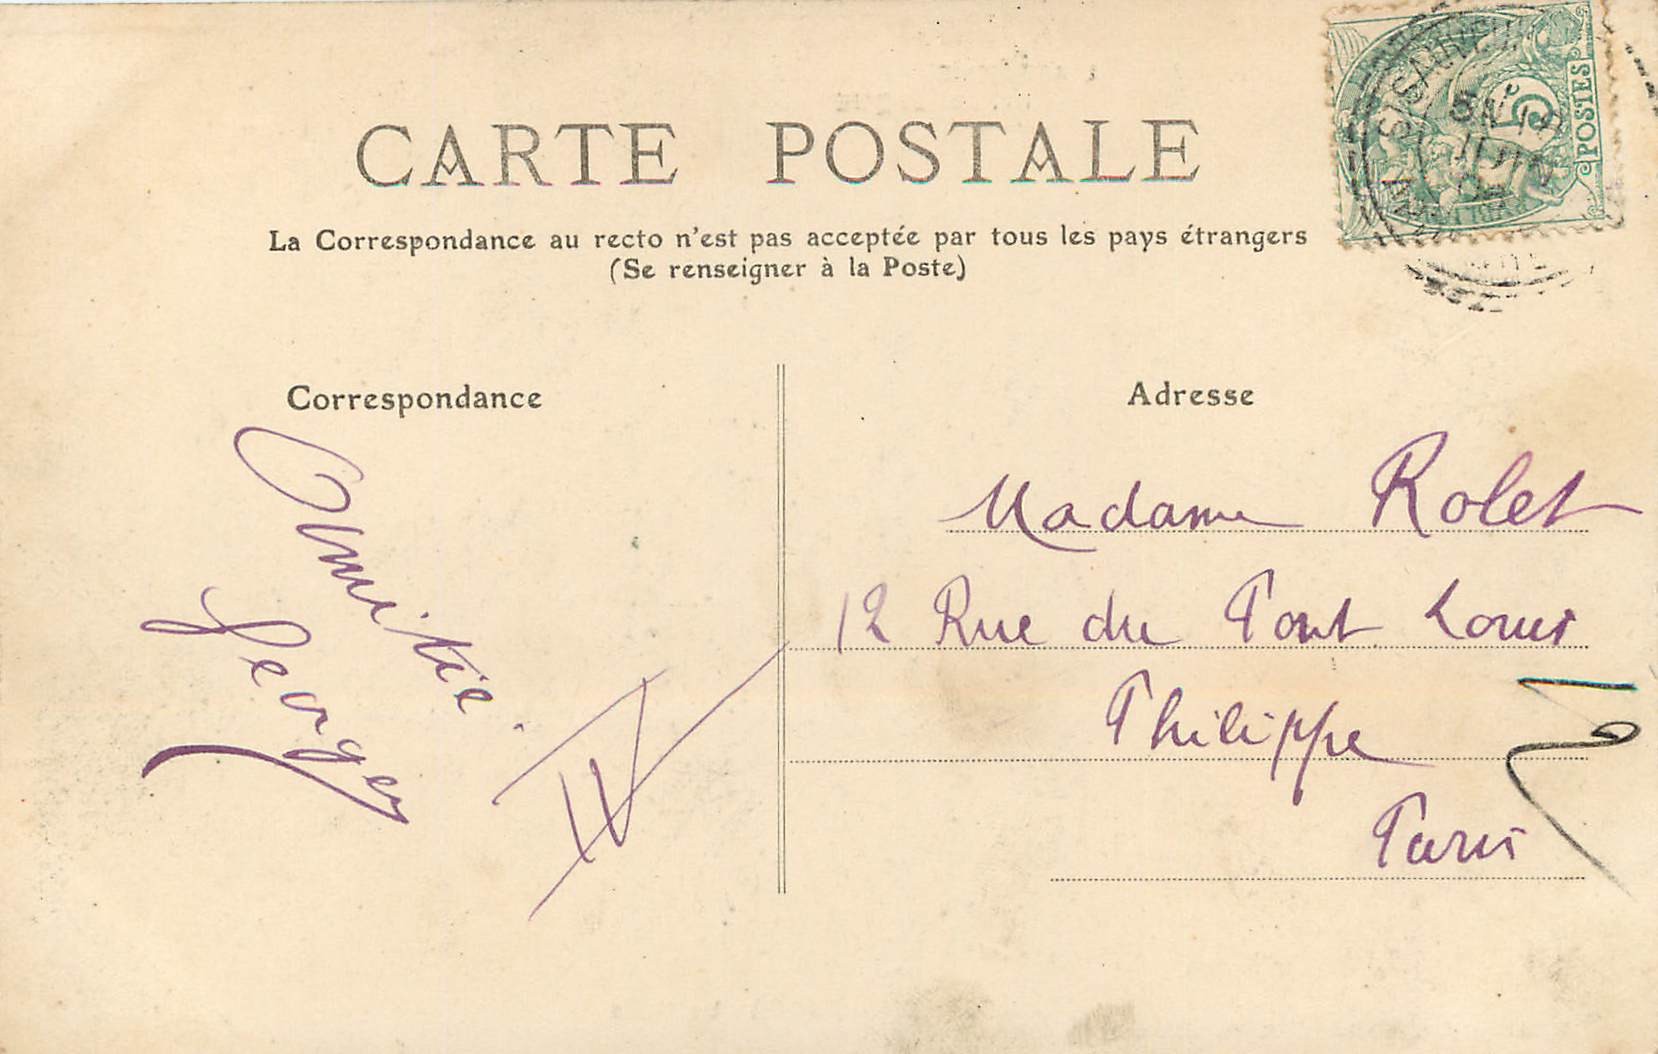 CARTE POSTALE
La Correspondance au recto n'est pas acceptée par tous les pays étrangers
(Se renseigner à la Poste)
POSTES
5
JUIN
Correspondance
Amitié.
Georges
Adresse
Madame Rolet
12 Rue du Pont Louis
Philippe
Paris